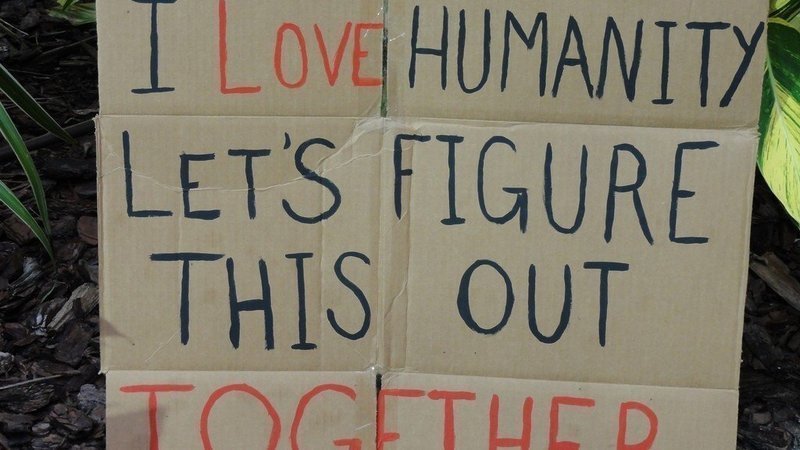 I LOVE HUMANITY
LET'S FIGURE
THIS OUT
TOGETHER